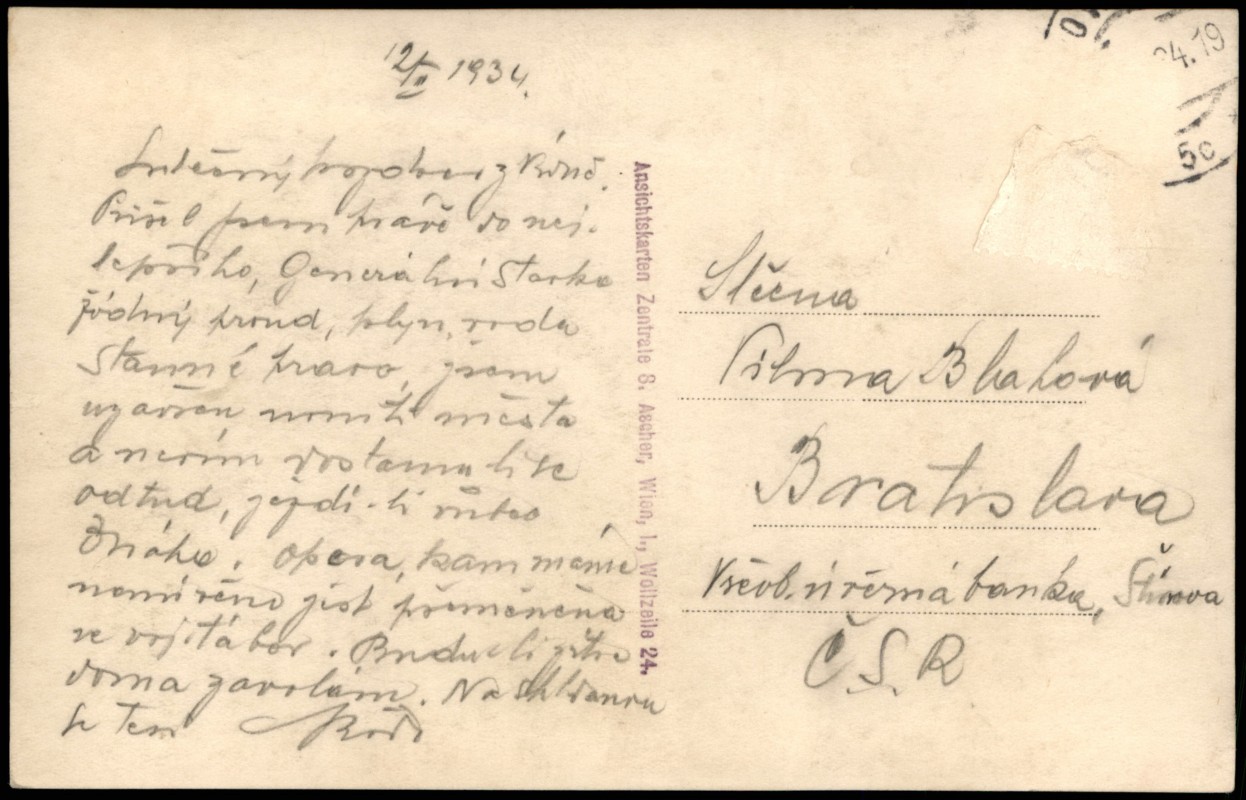 12/II 1934.
Srdečný pozdrav z Vídně.
Přišel jsem právě do nej-
lepšího, Generální stavka
žádný proud, plyn, voda
Stanné pravo, jsem
uzavřen uvnitř města
a nevím dostanu li se
odtud, jezdí-li vůbec
dráha. Opera, kam máme
namířeno jest přeměněna
ve voj. tábor. Budu li zítra
doma zavolám. Na shledanou
Ansichtskarten Zentrale S. Ascher, Wien, I., Wollzeile 24.
24.19
50
Slečna
Vilma Blahová
Bratislava
Všeob. úvěrná banka, Štúrova
Č.S.R